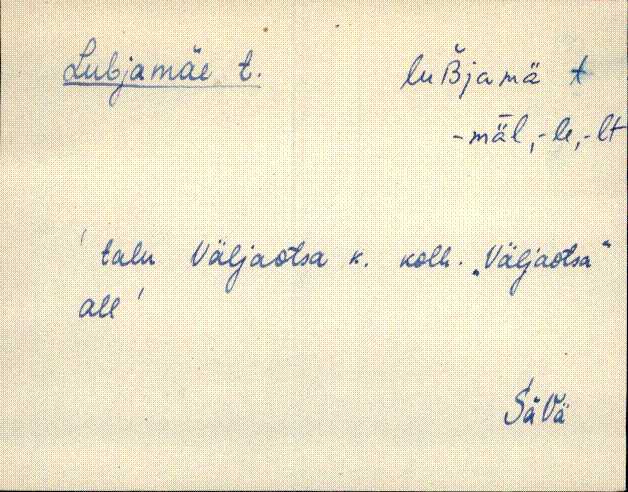 Lubjamäe t. luB̌jamä t
-mǟl, -le, -lt
'talu Väljaotsa k. kolh. „Väljaotsa“
all'
SáVä